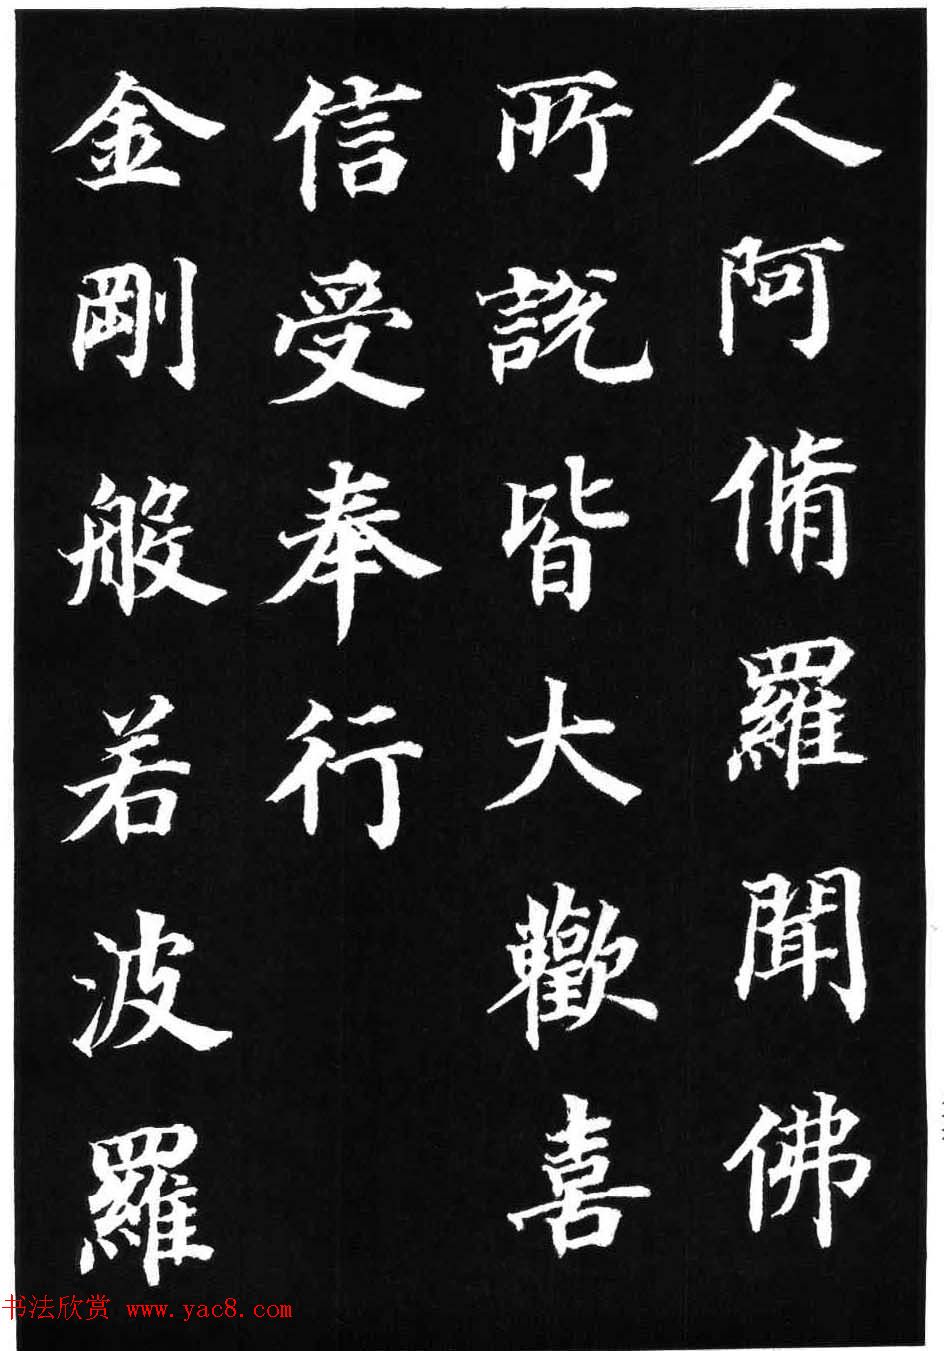 人阿脩羅聞佛
所説皆大歡喜
信受奉行
金剛般若波羅
书法欣赏 www.yac8.com